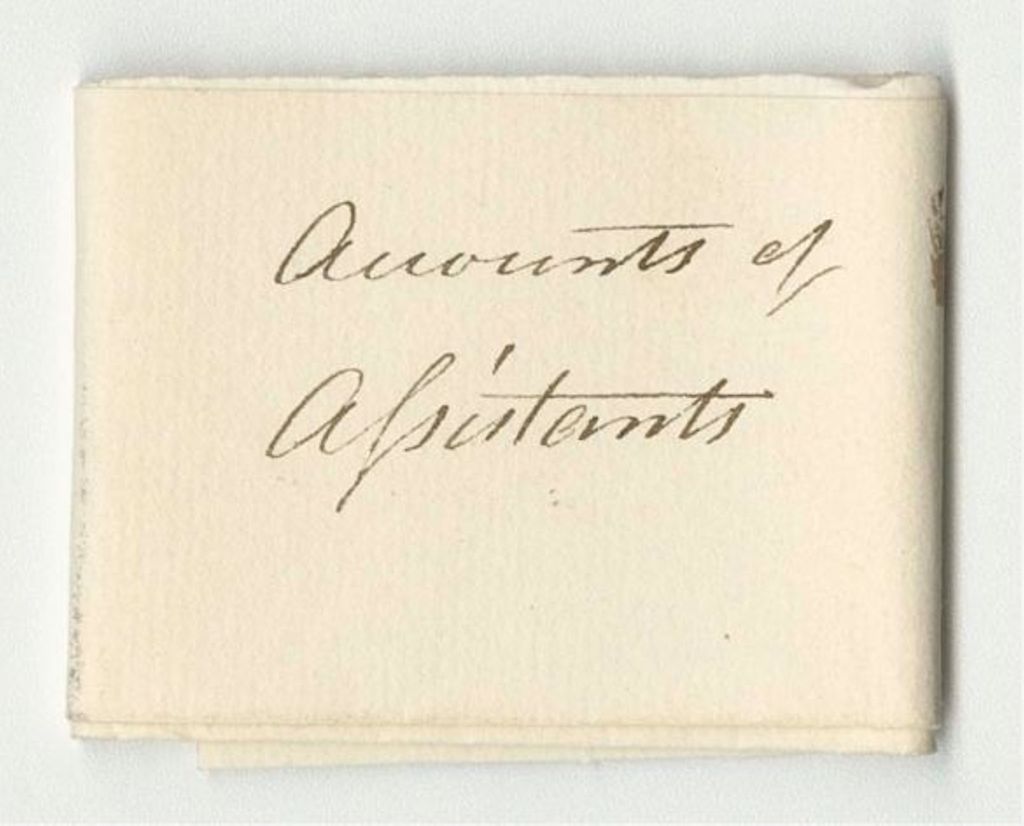 Accounts of
Aſsistants